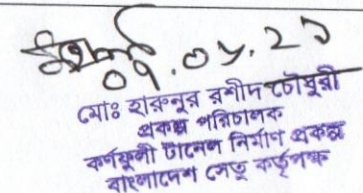 ০৭.০৮.২১
মোঃ হারুনুর রশীদ চৌধুরী
প্রকল্প পরিচালক
কর্ণফুলী টানেল নির্মাণ প্রকল্প
বাংলাদেশ সেতু কর্তৃপক্ষ